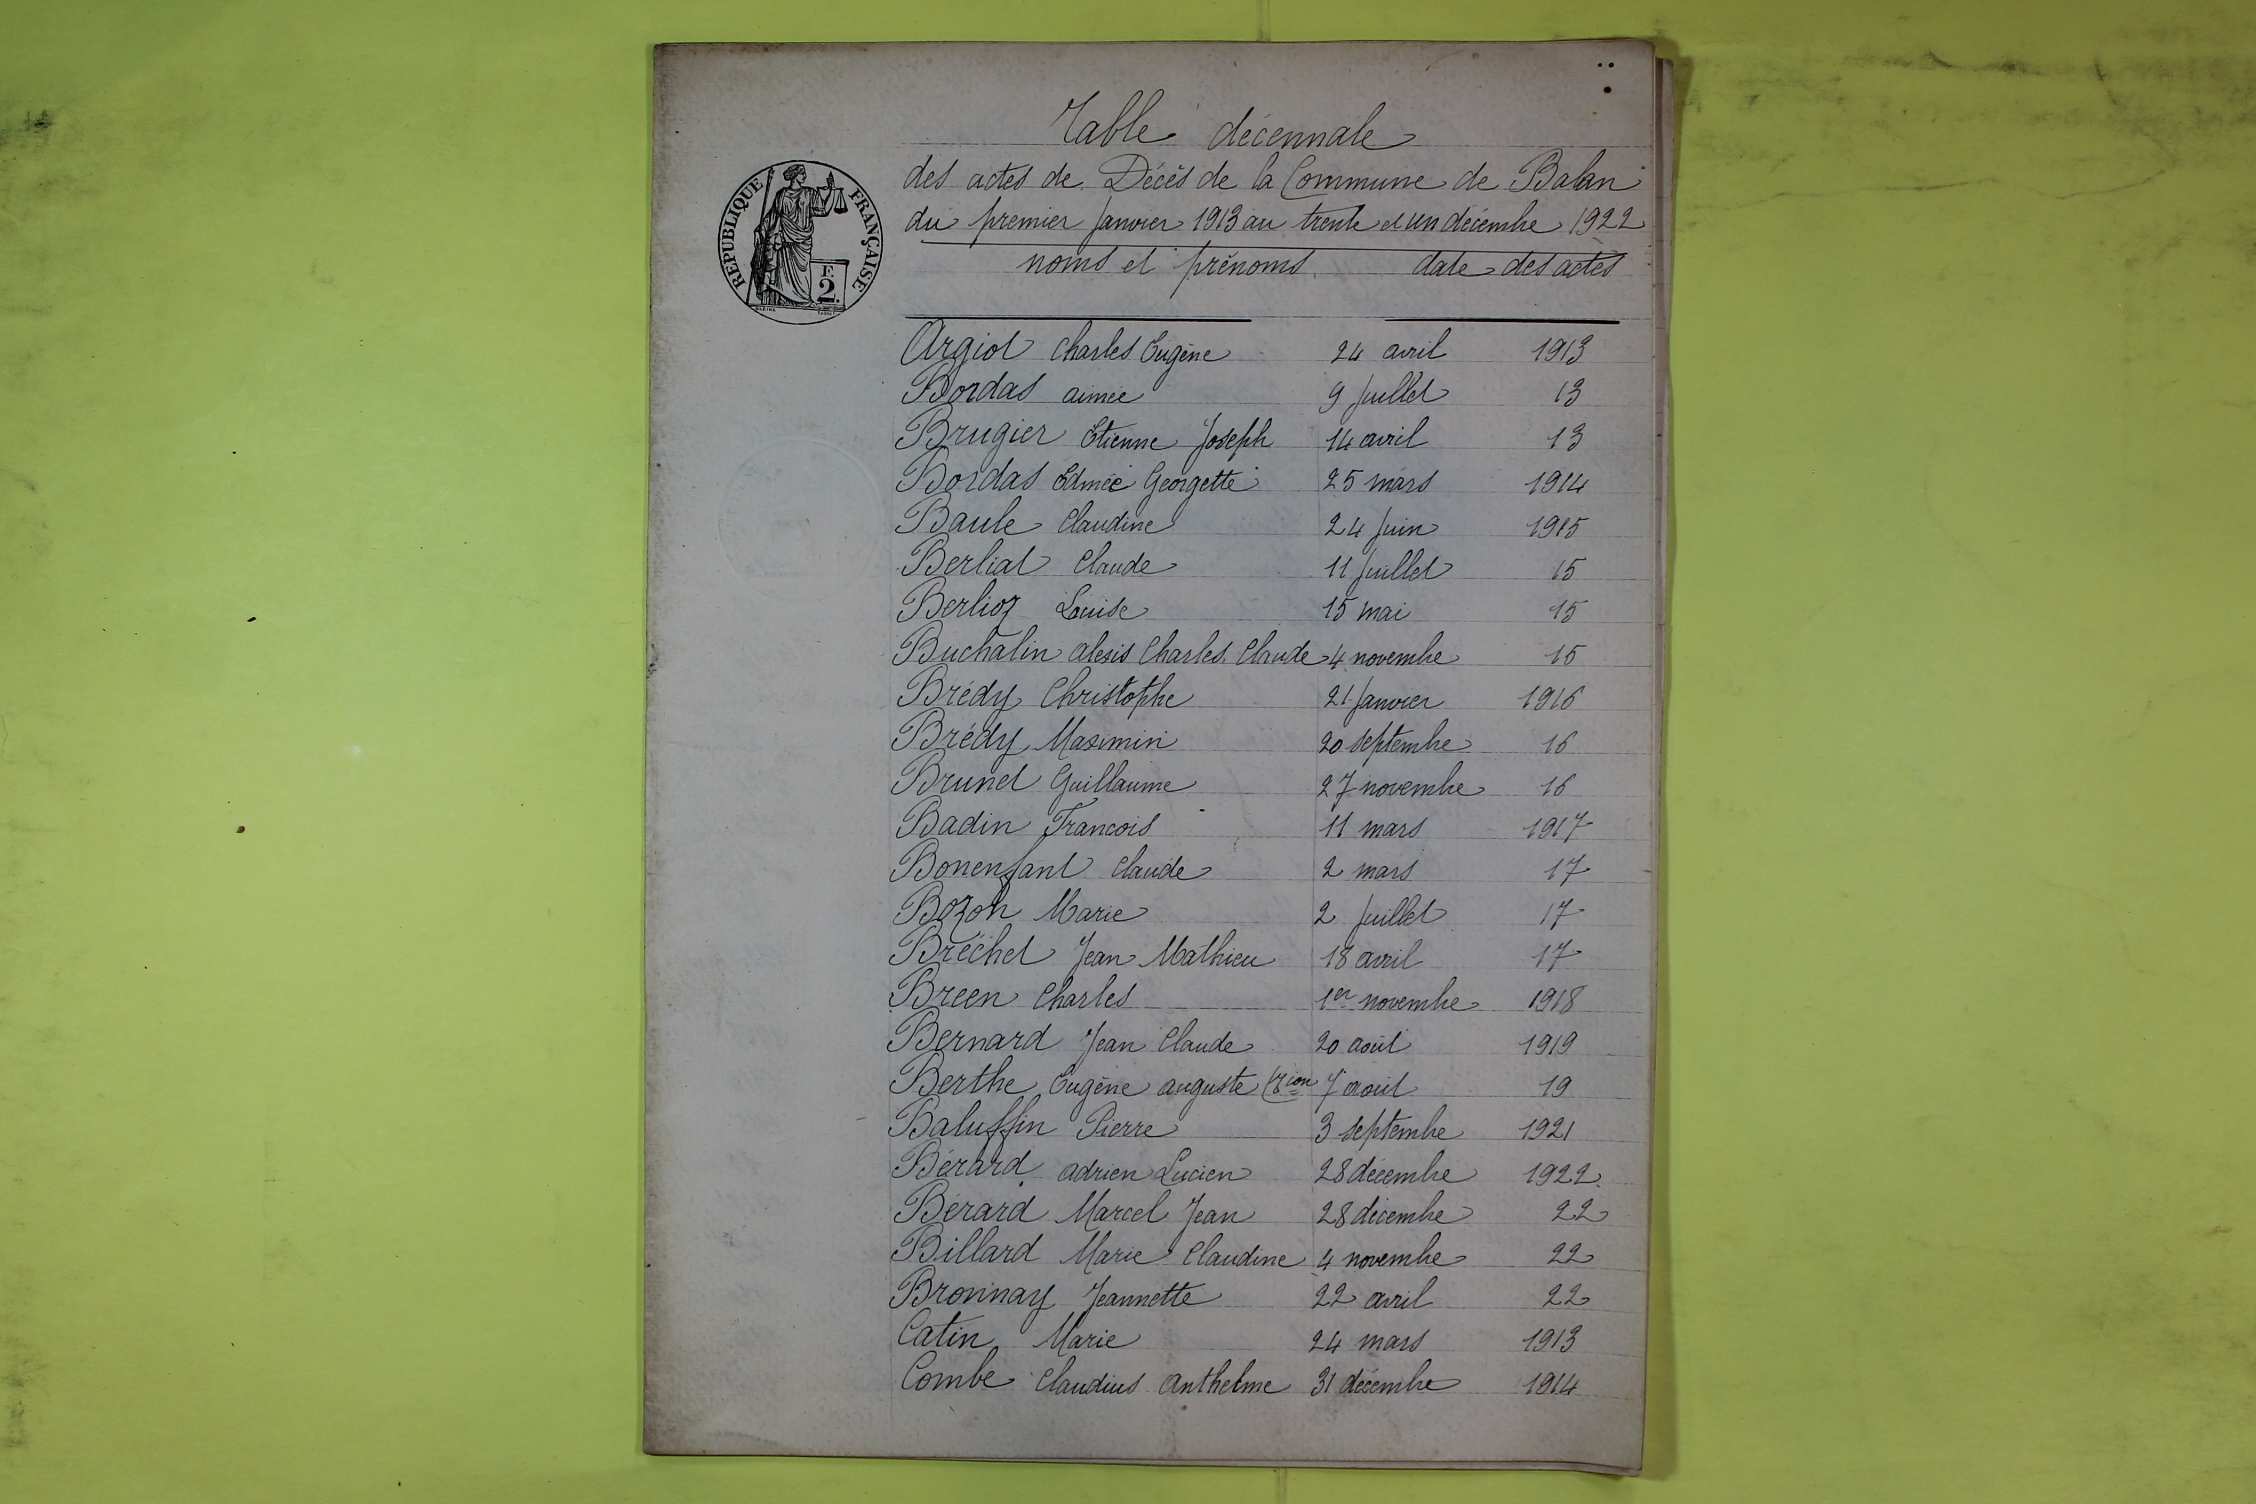 Table décennale
des actes de Décès de la Commune de Balan
du premier Janvier 1913 au trente et un décembre 1922
noms et prénoms date des actes
RÉPUBLIQUE FRANÇAISE
F.
2.
Argiot Charles Eugène 24 avril 1913
Bordas aimée 9 Juillet 13
Brugier Etienne Joseph 14 avril 13
Bordas Edmée Georgette 25 mars 1914
Baule Claudine 24 Juin 1915
Berliat Claude 11 Juillet 15
Berlioz Louise 15 mai 15
Buchalin alexis Charles Claude 4 novembre 15
Brédy Christophe 21 Janvier 1916
Brédy Maximin 20 septembre 16
Brunet Guillaume 27 novembre 16
Badin Francois 11 mars 1917
Bonenfant Claude 2 mars 17
Bozon Marie 2 Juillet 17
Bréchet Jean Mathieu 18 avril 17
Breen Charles 1er novembre 1918
Bernard Jean Claude 20 août 1919
Berthe Eugène auguste 7 août 19
Baluffin Pierre 3 septembre 1921
Bérard adrien Lucien 28 décembre 1922
Bérard Marcel Jean 28 décembre 22
Billard Marie Claudine 4 novembre 22
Bronnay Jeannette 22 avril 22
Catin Marie 24 mars 1913
Combe Claudius anthelme 31 décembre 1914